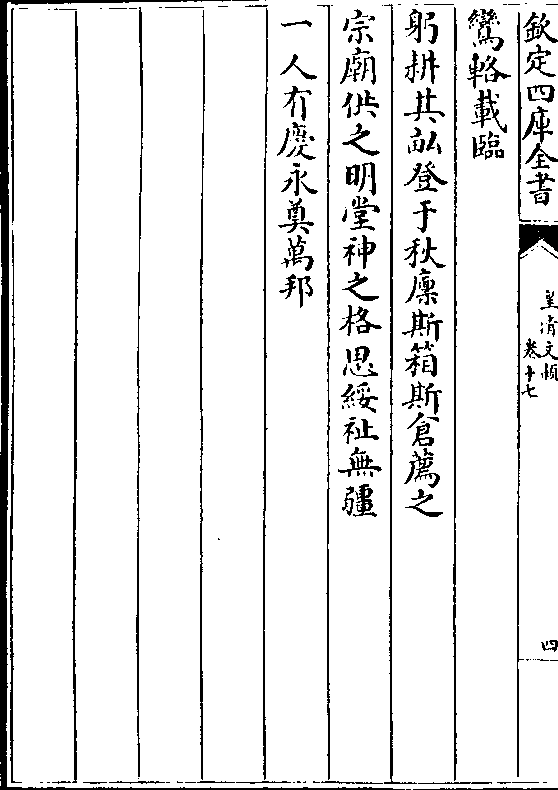 欽定四庫全書
皇清文頴
卷十七
四
鸞輅載臨
躬耕其畝登于秋廩斯箱斯倉薦之
宗廟供之明堂神之格思綏祉無疆
一人有慶永奠萬邦